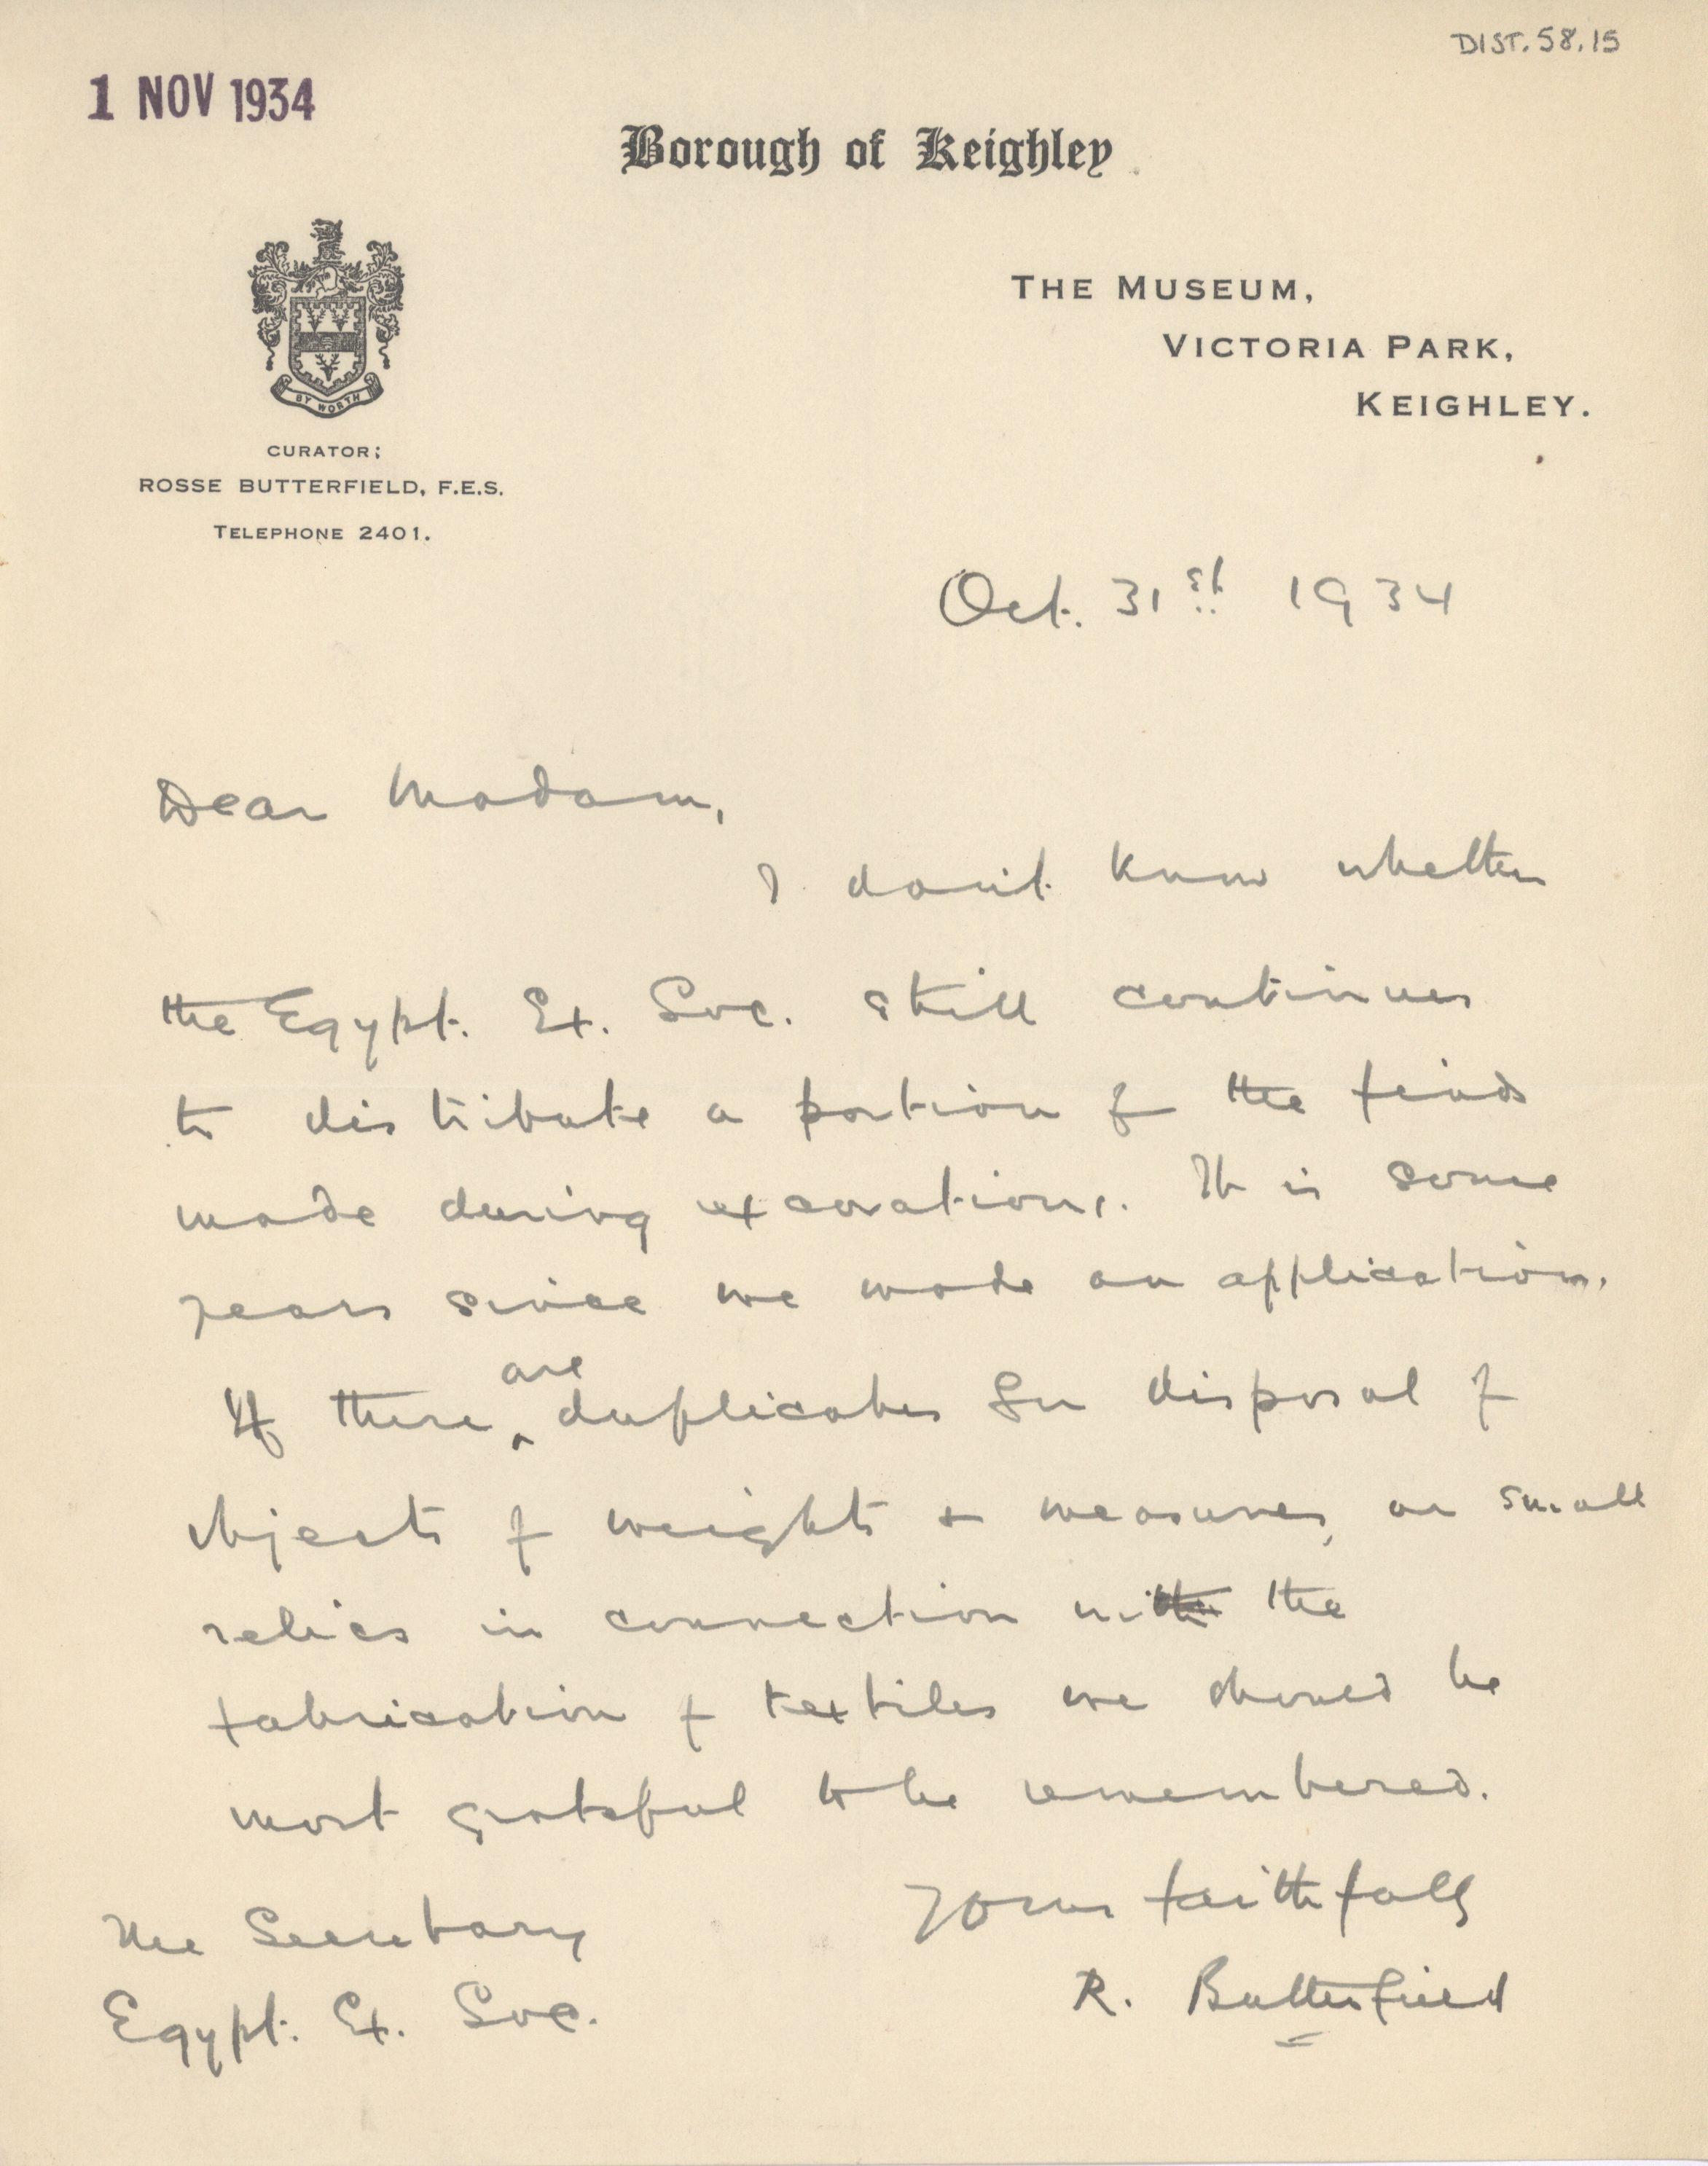 DIST. 58.15
1 NOV 1934
Borough of Keighley
BY WORTH
THE MUSEUM,
VICTORIA PARK,
KEIGHLEY.
CURATOR:
ROSSE BUTTERFIELD, F.E.S.
TELEPHONE 2401.
Oct. 31st 1934
Dear Madam,
I don't know whether
the Egypt. Ex. Soc. still continues
to distribute a portion of the finds
made during excavations. It is some
years since we made an application.
are
If there ‸ duplicates for disposal of
objects of weights & measures, or small
relics in connection with the
fabrication of textiles we should be
most grateful to be remembered.
Yours faithfully
R. Butterfield
The Secretary
Egypt. Ex. Soc.